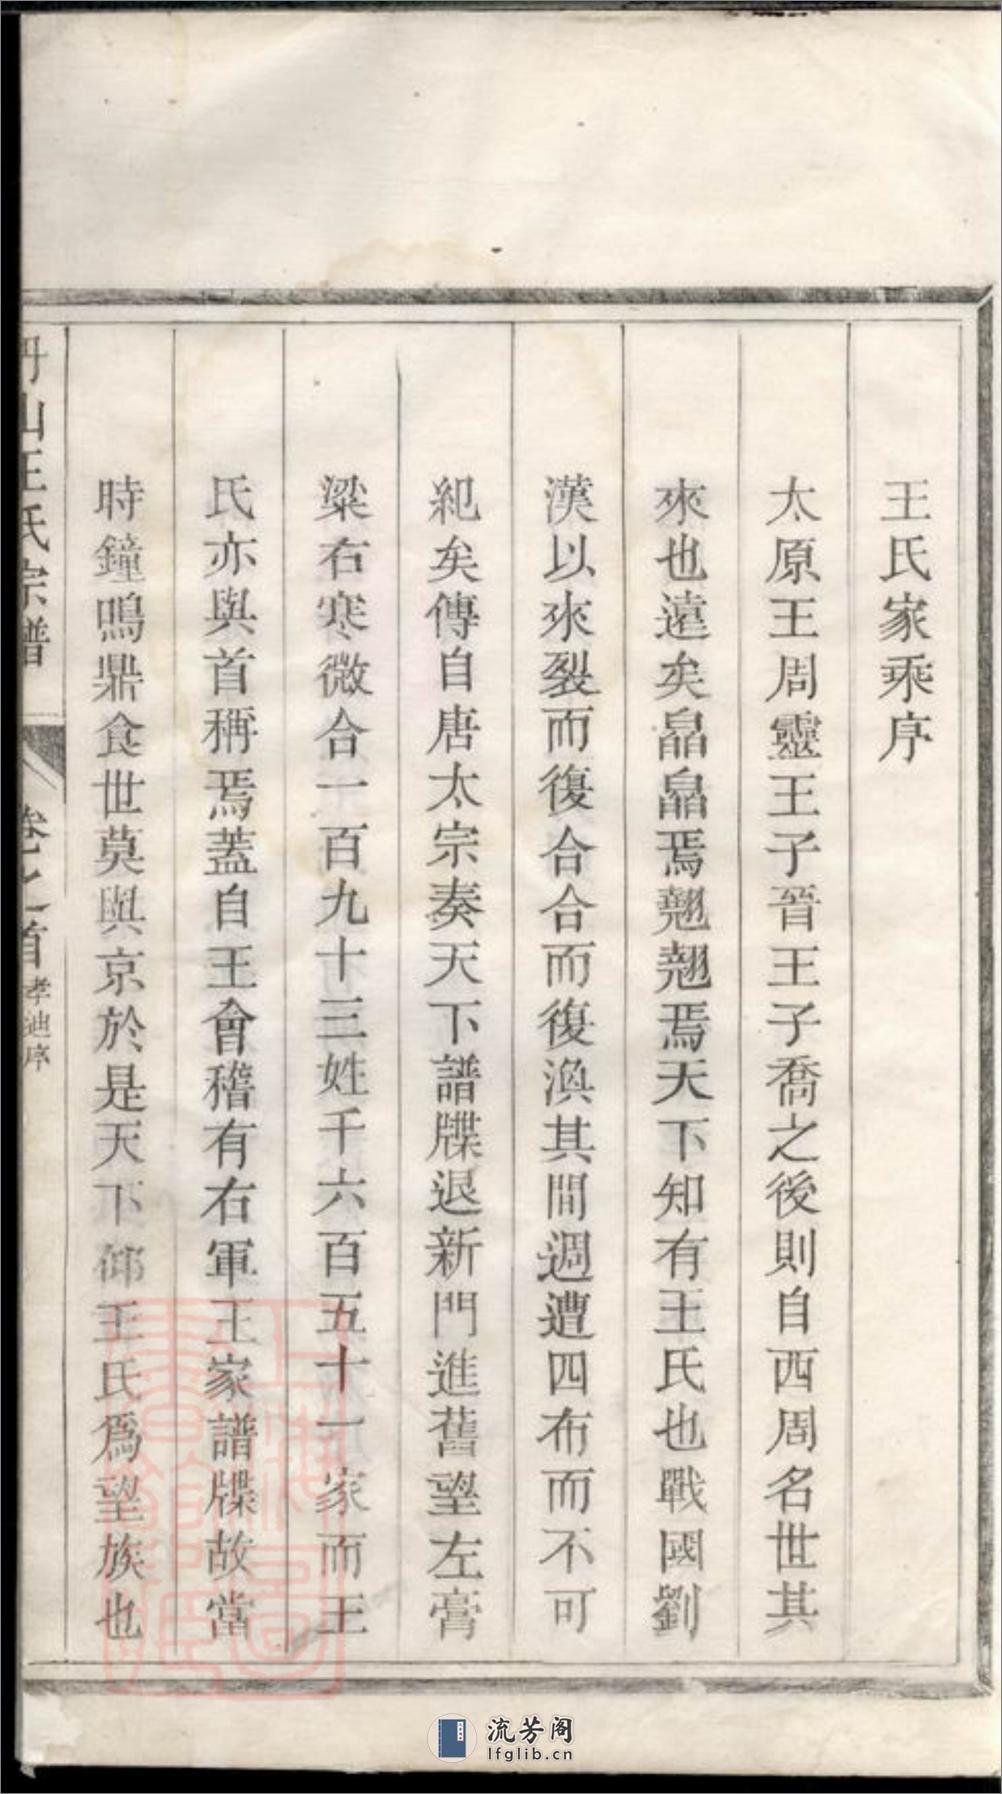 王氏家乘序
太原王周靈王子晉王子喬之後則自西周名世其
來也遠矣皛皛焉翹翹焉天下知有王氏也戰國劉
漢以來裂而復合合而復渙其間週遭四布而不可
紀矣傳自唐太宗奏天下譜牒退新門進舊望左膏
粱右寒微合一百九十三姓千六百五十一家而王
氏亦與首稱焉蓋自王會稽有右軍王家譜牒故當
時鐘鳴鼎食世莫與京於是天下仰王氏爲望族也
山王氏宗譜
卷之首
孝迪序
流芳阁
lfglib.cn